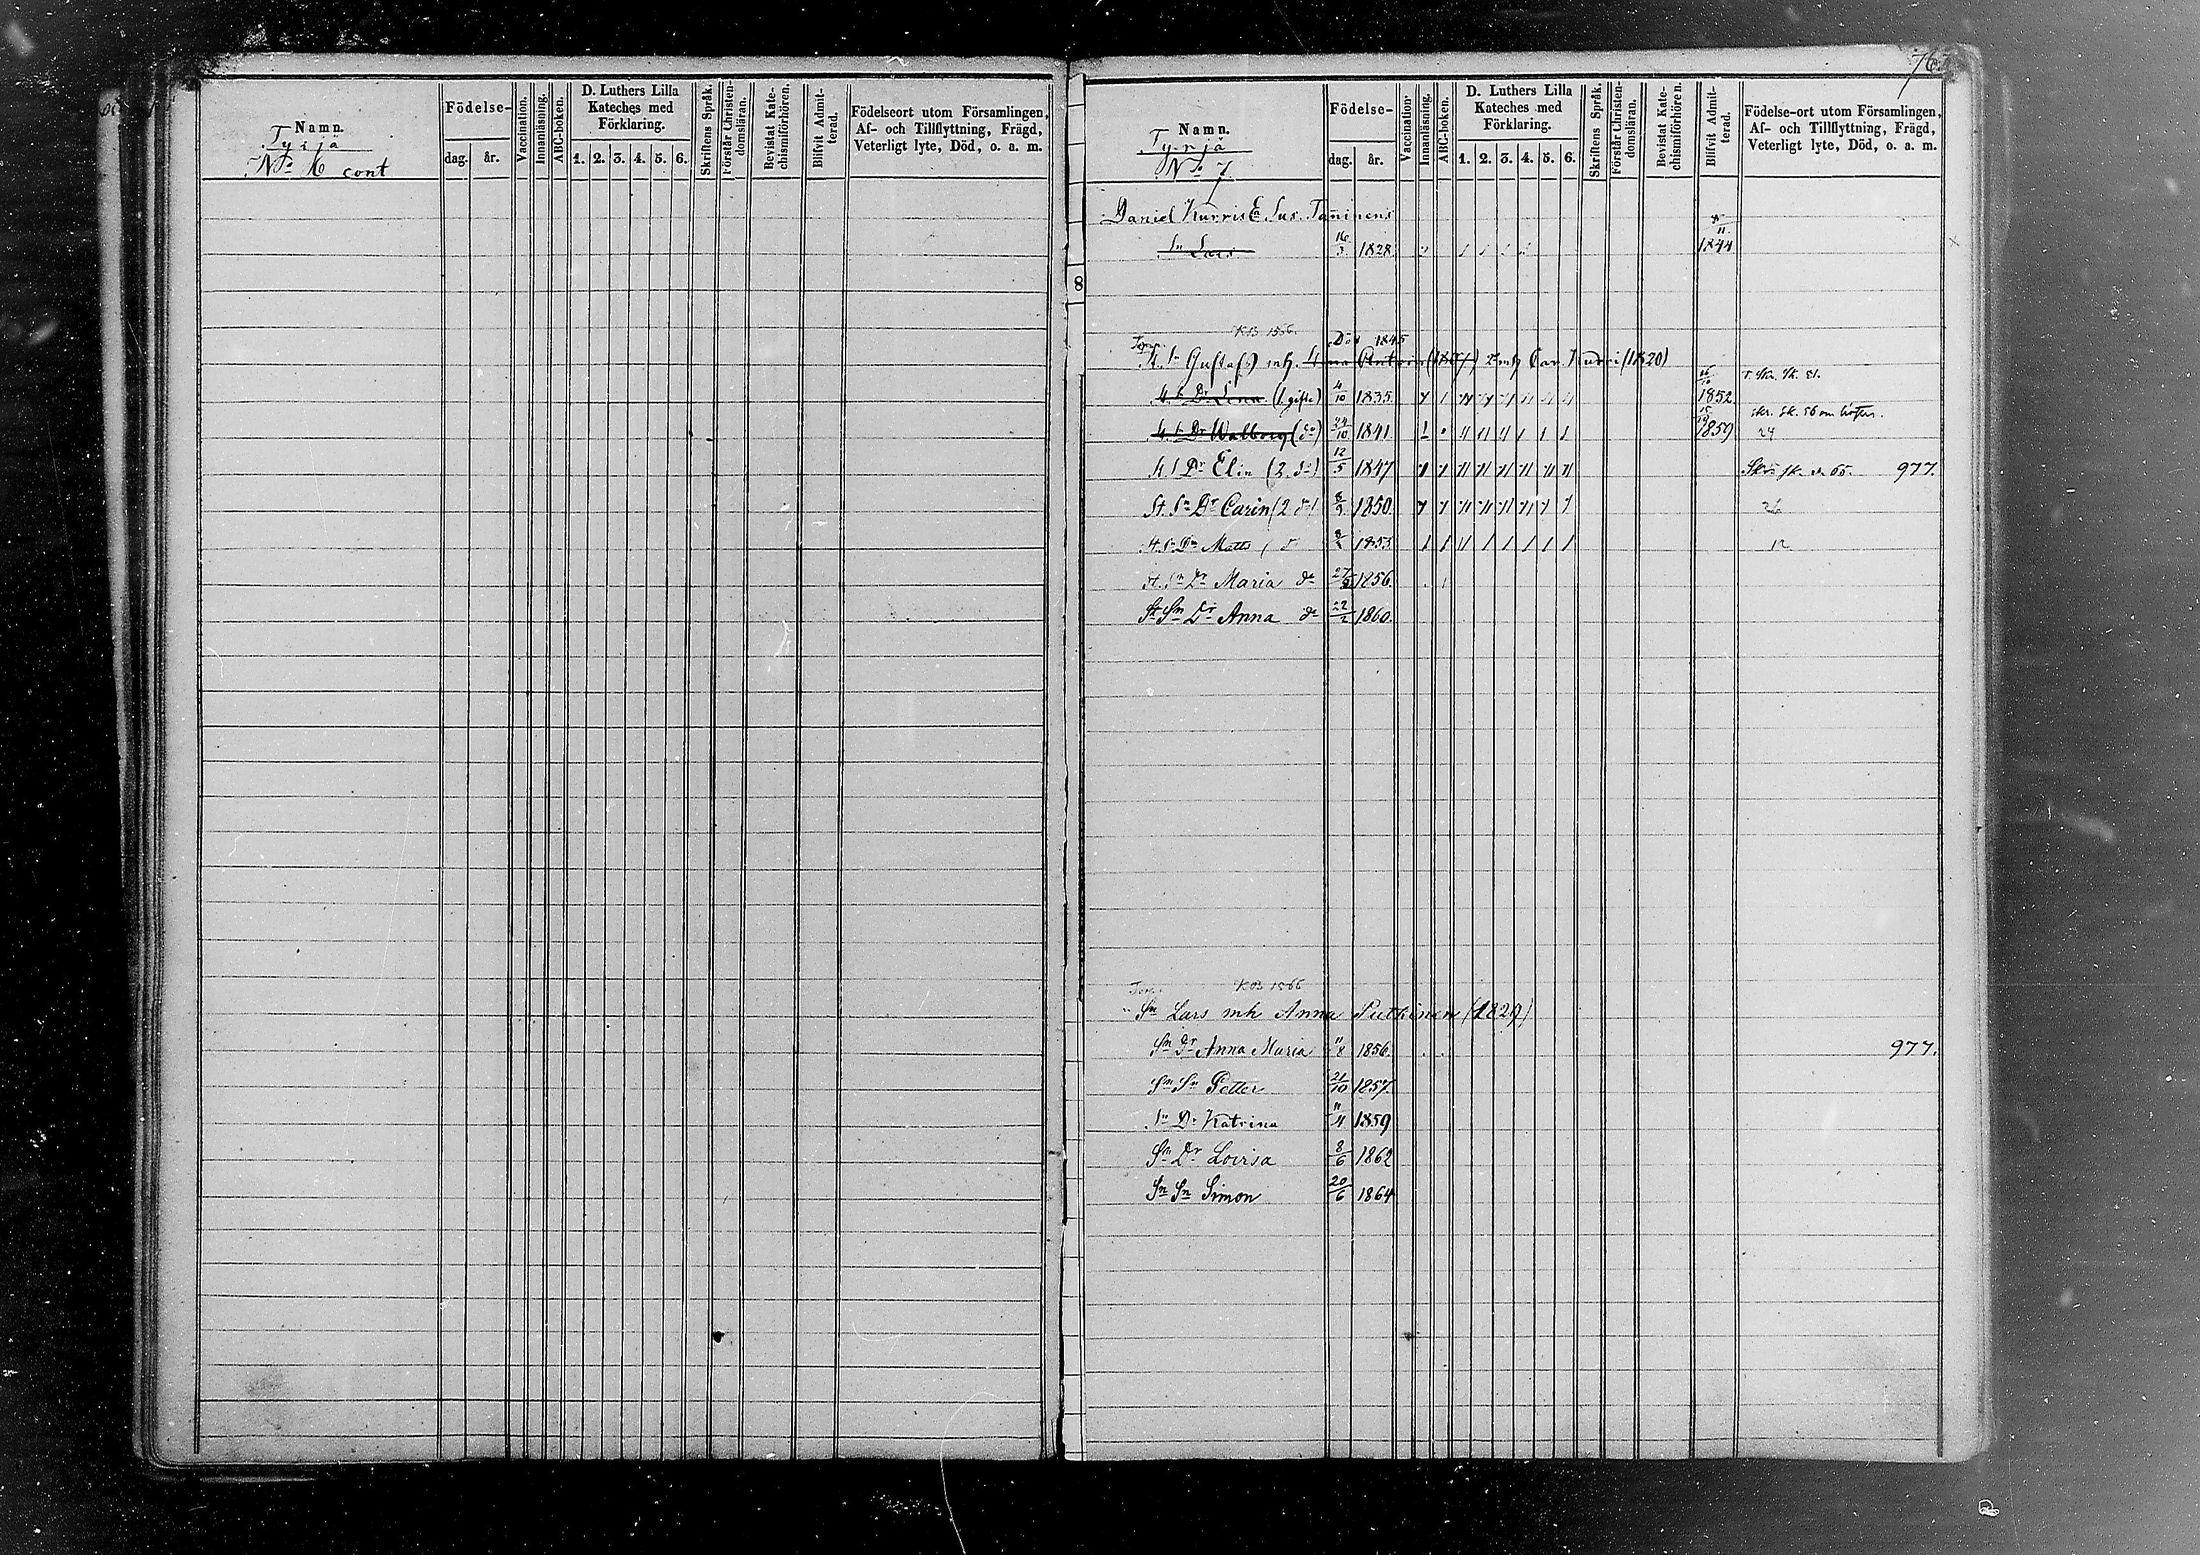 Namn.
Tyrjä
No 6 cont
Födelse-
dag. år.
Vaccination.
Innanläsning.
ABC-boken.
D. Luthers Lilla
Kateches med
Förklaring.
1. 2. 3. 4. 5. 6.
Skriftens Språk.
Förstår Christen-
domsläran.
Bevistat Kate-
chismiförhören.
Blifvit Admit-
terad.
Födelseort utom Församlingen,
Af- och Tillflyttning, Frägd,
Veterligt lyte, Död, o. a. m.
76
Namn.
Tyrjä
No 7
Födelse-
dag. år.
Vaccination.
Innanläsning.
ABC-boken.
D. Luthers Lilla
Kateches med
Förklaring.
1. 2. 3. 4. 5. 6.
Skriftens Språk.
Förstår Christen-
domsläran.
Bevistat Kate-
chismiförhören.
Blifvit Admit-
terad.
Födelse-ort utom Församlingen,
Af- och Tillflyttning, Frägd,
Veterligt lyte, Död, o. a. m.
Daniel Kurris Sus. Tanninens
Sn Lars 16/3 1828 1844
8
Död 1845
Gustaf mh. 2 mh Car. Kurri (1820)
Dr Lena (1 gifte) 4/10 1835 1852
Dr Walborg (do) 24/10 1841 1859 24
Dr Elin (2 do) 12/5 1847 977.
St. Sn Dr Carin (2 do) 8/9 1850 26
Matts 1853 12
St. Sn Dr Maria do 1856.
St Sn Dr Anna do 22/2 1860.
KB 1566
Sn Lars mh Anna Putkinen (1829)
Sn Dr Anna Maria 11/8 1856. 977.
Sn Sn Petter 21/10 1857.
Sn Dr Katrina 11/11 1859
Sn Dr Lovisa 8/6 1862
Sn Sn Simon 20/6 1864